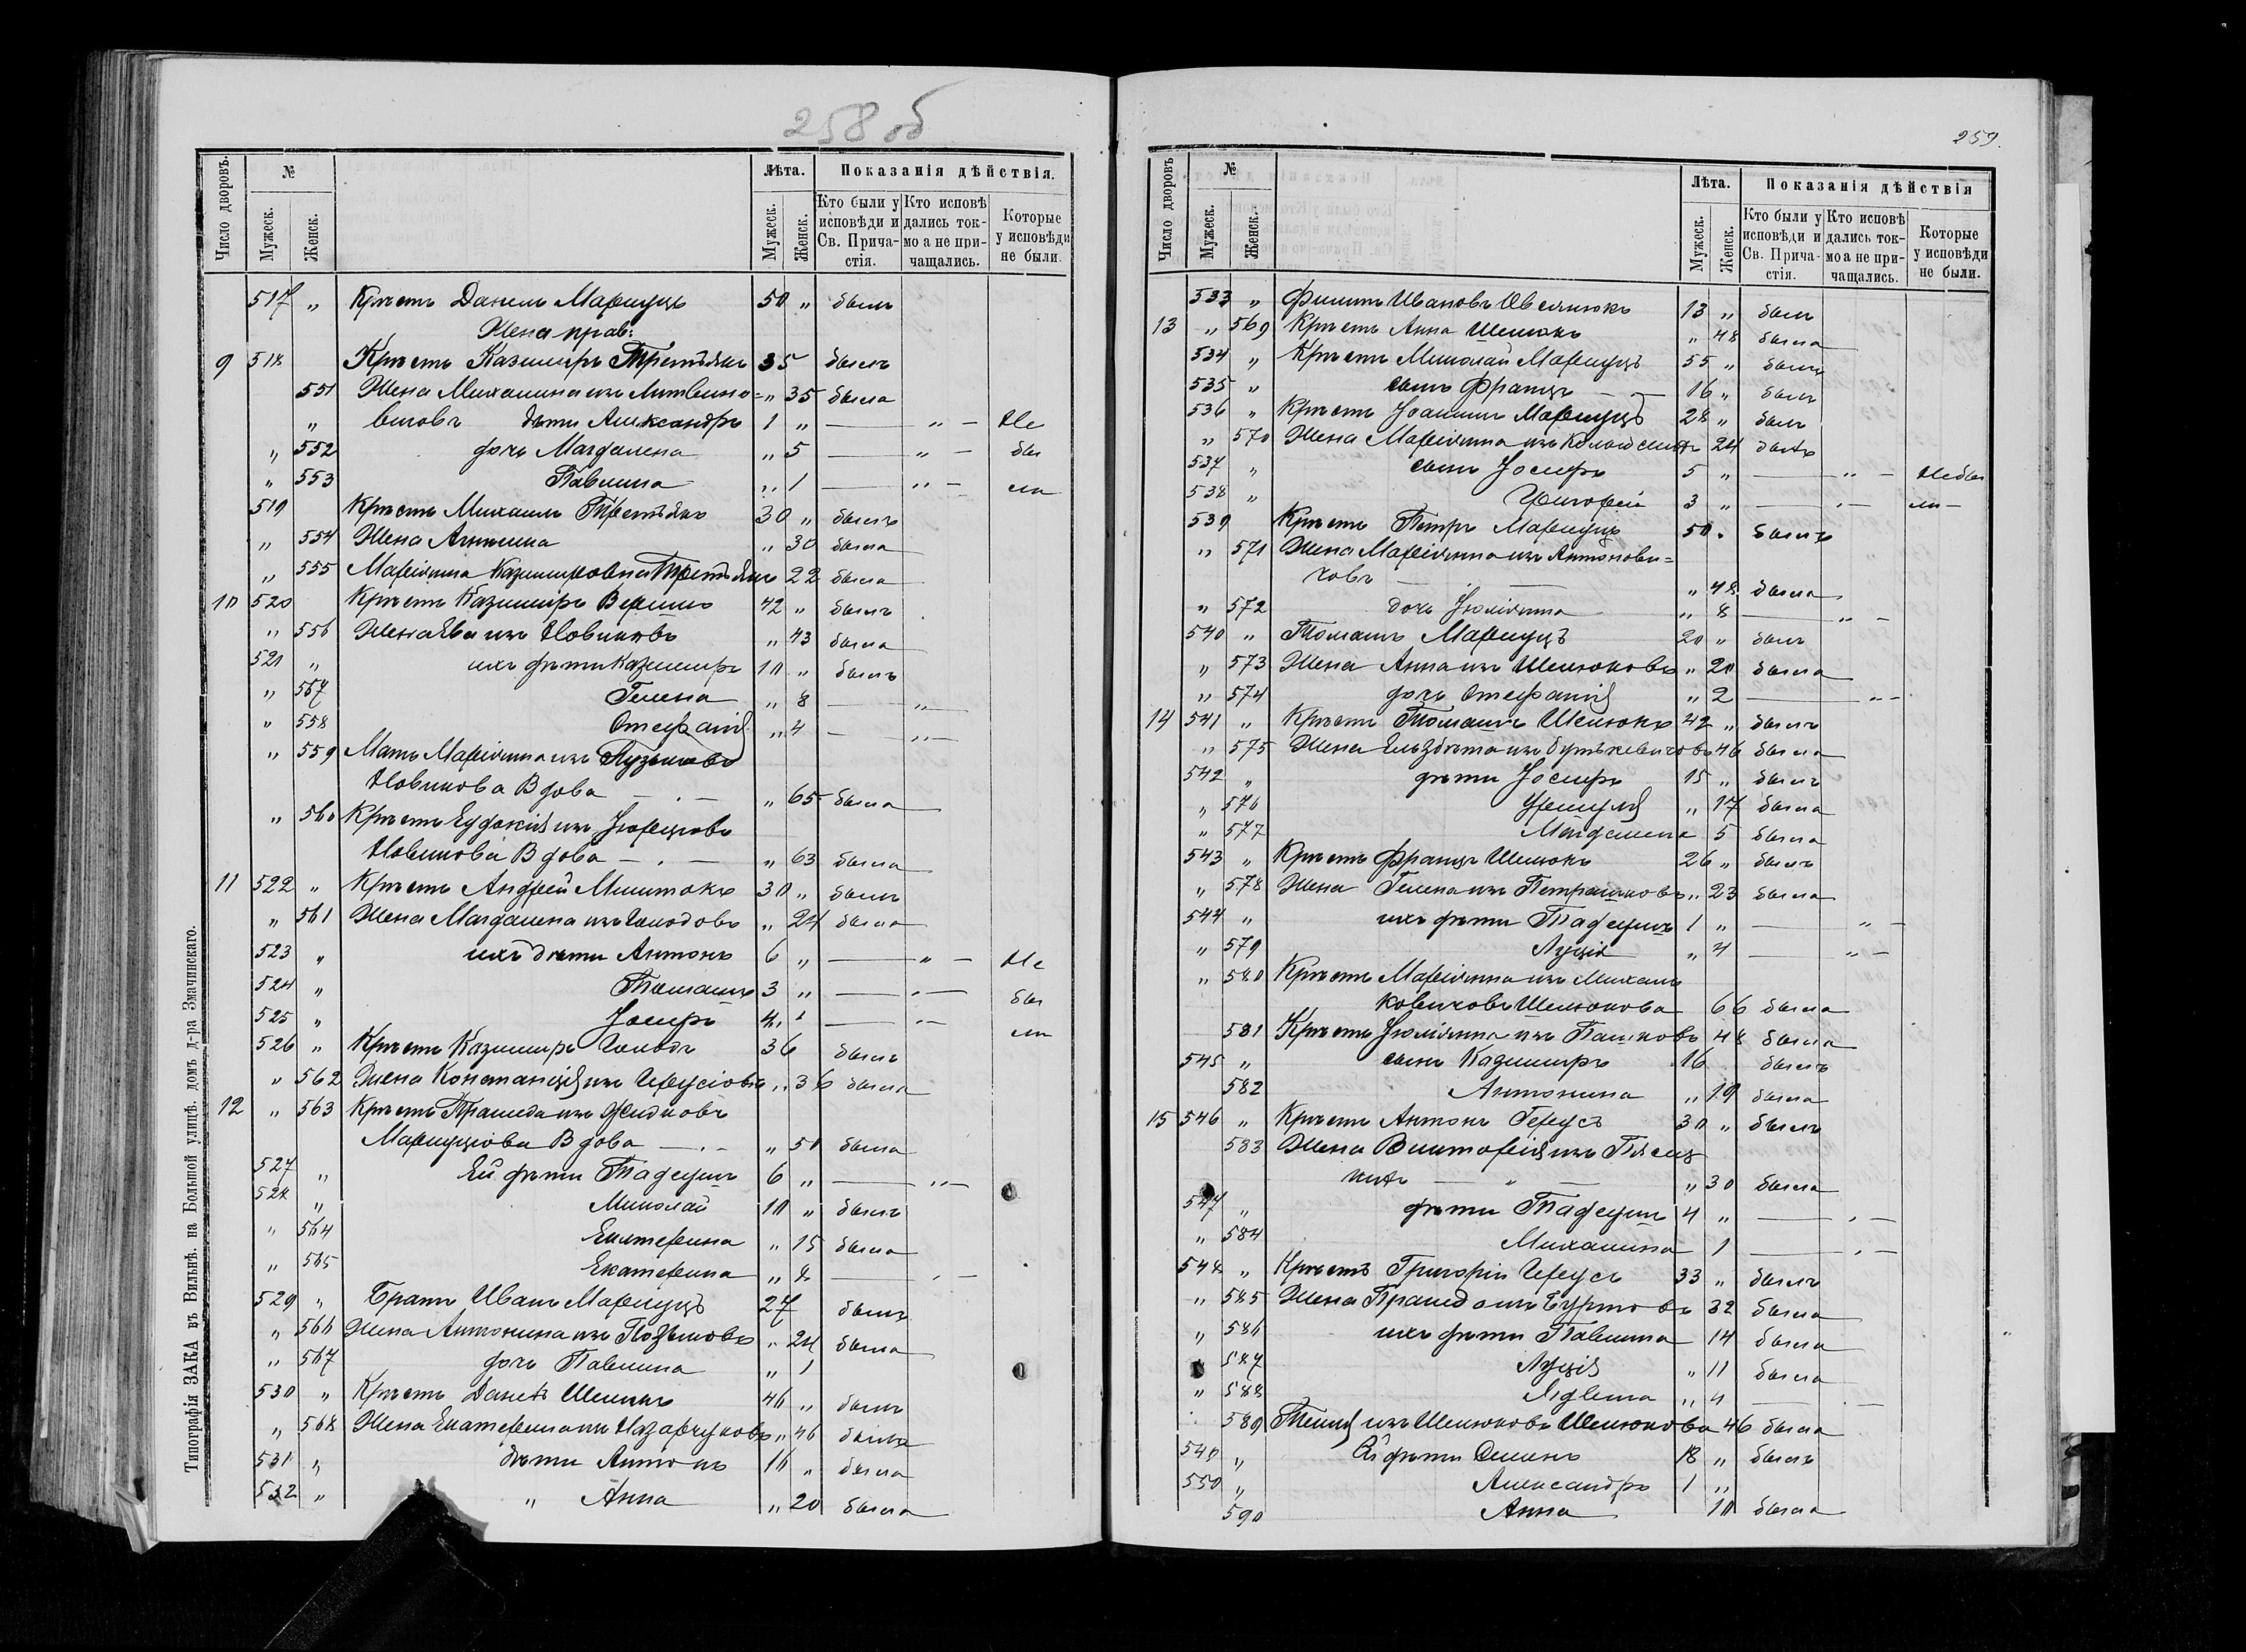 258 об
Число дворовъ. № Лѣта. Показанія дѣйствія.
Мужеск. Женск. Мужеск. Женск. Кто были у исповѣди и Св. Прича-стія. Кто исповѣ дались ток-мо а не при-чащались. Которые у исповѣди не были.
517 „ Крест Данилъ Марцуцъ 50 „ былъ
Жена прав:
9 518 Крест Казимиръ Третьякъ 35 былъ
551 Жена Михалина изъ Литвино= „ 35 была
„ вичовъ дѣти Александръ 1 „ — „ — Не
„ 552 дочь Магдалена „ 5 — „ — бы
„ 553 Павлина „ 1 — „ — ли
519 Крест Михаилъ Третьякъ 30 „ былъ
„ 554 Жена „ 30 была
„ 555 Маріянна Казимировна Третьякъ 22 была
10 520 Крест Казимиръ 42 „ былъ
„ 556 Жена Ева изъ Новиковъ „ 43 была
521 „ ихъ дѣти Казимиръ 10 „ былъ
„ 557 Гелена „ 8 — „
„ 558 Стефанія „ 4 — „ —
„ 559 Мать Маріянна изъ
Новикова Вдова — . — „ 65 была
„ 560 Крест Евдокія изъ
Новикова Вдова — . — „ 63 была
11 522 „ Крест Андрей 30 „ былъ
„ 561 Жена Магдалена изъ Голодовъ „ 24 была
523 „ ихъ дѣти Антонъ 6 „ — „ — Не
524 „ Томашъ 3 „ — . — бы
525 „ Іосифъ — „ — ли
526 „ Крест Казимиръ Голодъ 36 былъ
„ 562 Жена Констанція изъ „ 36 была
12 „ 563 Крест Пракседа изъ
Марцуцова Вдова — . — „ 50 была
527 „ Ей дѣти Тадеушъ 6 „ — „ —
528 „ Миколай 10 „ былъ
„ 564 Екатерина „ 15 была
„ 565 Екатерина „ 8 — . —
529 „ Братъ Иванъ Марцуцъ 27 былъ
„ 566 Жена Антонина изъ „ 24 была
„ 567 дочь Павлина „ 1
530 „ Крест Даніилъ Шелюкъ 46 „ былъ
„ 568 Жена Екатерина изъ Назарчуковъ „ 46 была
531 „ дѣти Антонъ 16 „ была
532 „ „ Анна „ 20 была
Типографія ЗАКА въ Вильнѣ. на Большой улицѣ. домъ д-ра Змачинскаго.
259.
Число дворовъ № Лѣта. Показанія дѣйствія
Мужеск. Женск. Мужеск. Женск. Кто были у исповѣди и Св. Прича-стія. Кто исповѣ дались ток-мо а не при-чащались. Которые у исповѣди не были.
533 „ Филипъ Ивановъ Овсянюкъ 13 „ былъ
13 „ 569 Крест Анна Шелюкъ „ 48 была
534 „ Крест Миколай Марцуцъ 55 „ былъ
535 „ сынъ Францъ — — 16 „ былъ
536 „ Крест Іоаннъ Марцуцъ 28 „ былъ
„ 570 Жена Маріянна изъ 24
537 „ сынъ Іосифъ 5 „ — „ — Не бы
538 „ Григорій 3 „ — . — ли —
539 Крест Петръ Марцуцъ 50 . былъ
„ 571 Жена Маріянна изъ Антонови=
човъ — . — „ 48 была
„ 572 дочь Юліянна „ 8 — „ —
540 „ Томашъ Марцуцъ 20 „ былъ
„ 573 Жена Анна изъ Шелюковъ „ 20 была
„ 574 дочь Стефанія „ 2 — „ —
14 541 „ Крест Томашъ Шелюкъ 42 „ былъ
„ 575 Жена Ельзбета изъ 46 была
542 „ дѣти Іосифъ 15 „ былъ
„ 576 Уршуля „ 17 была
„ 577 Магдалена 5 была
543 „ Крест Францъ Шелюкъ 26 „ былъ
„ 578 Жена Гелена изъ Петрашковъ „ 23 была
544 „ ихъ дѣти Тадеушъ 1 „ — „ —
„ 579 Луція „ 4 — „ —
„ 580 Крест Маріянна изъ Михаль
ковичовъ Шелюкова 66 была
581 Крест Юліянна изъ Пашковъ „ 48 была
545 „ сынъ Казимиръ 16 былъ
582 Антонина „ 19 была
15 546 „ Крест Антонъ Герусъ 30 „ былъ
583 Жена Викторія изъ
— „ — „ 30 была
547 „ дѣти Тадеушъ 4 „ — . —
„ 584 Михалина 1 — . —
548 „ Крест Григорій Герусъ 33 „ былъ
„ 585 Жена Пракседа изъ 32 была
„ 586 ихъ дѣти Павлина 14 была
587 Луція „ 11 была
„ 588 „ 4 — . —
589 изъ Шелюковъ Шелюкова 46 была
549 „ Ей дѣти Семенъ 18 „ былъ
550 „ Александръ 1 „
590 Анна 10 была